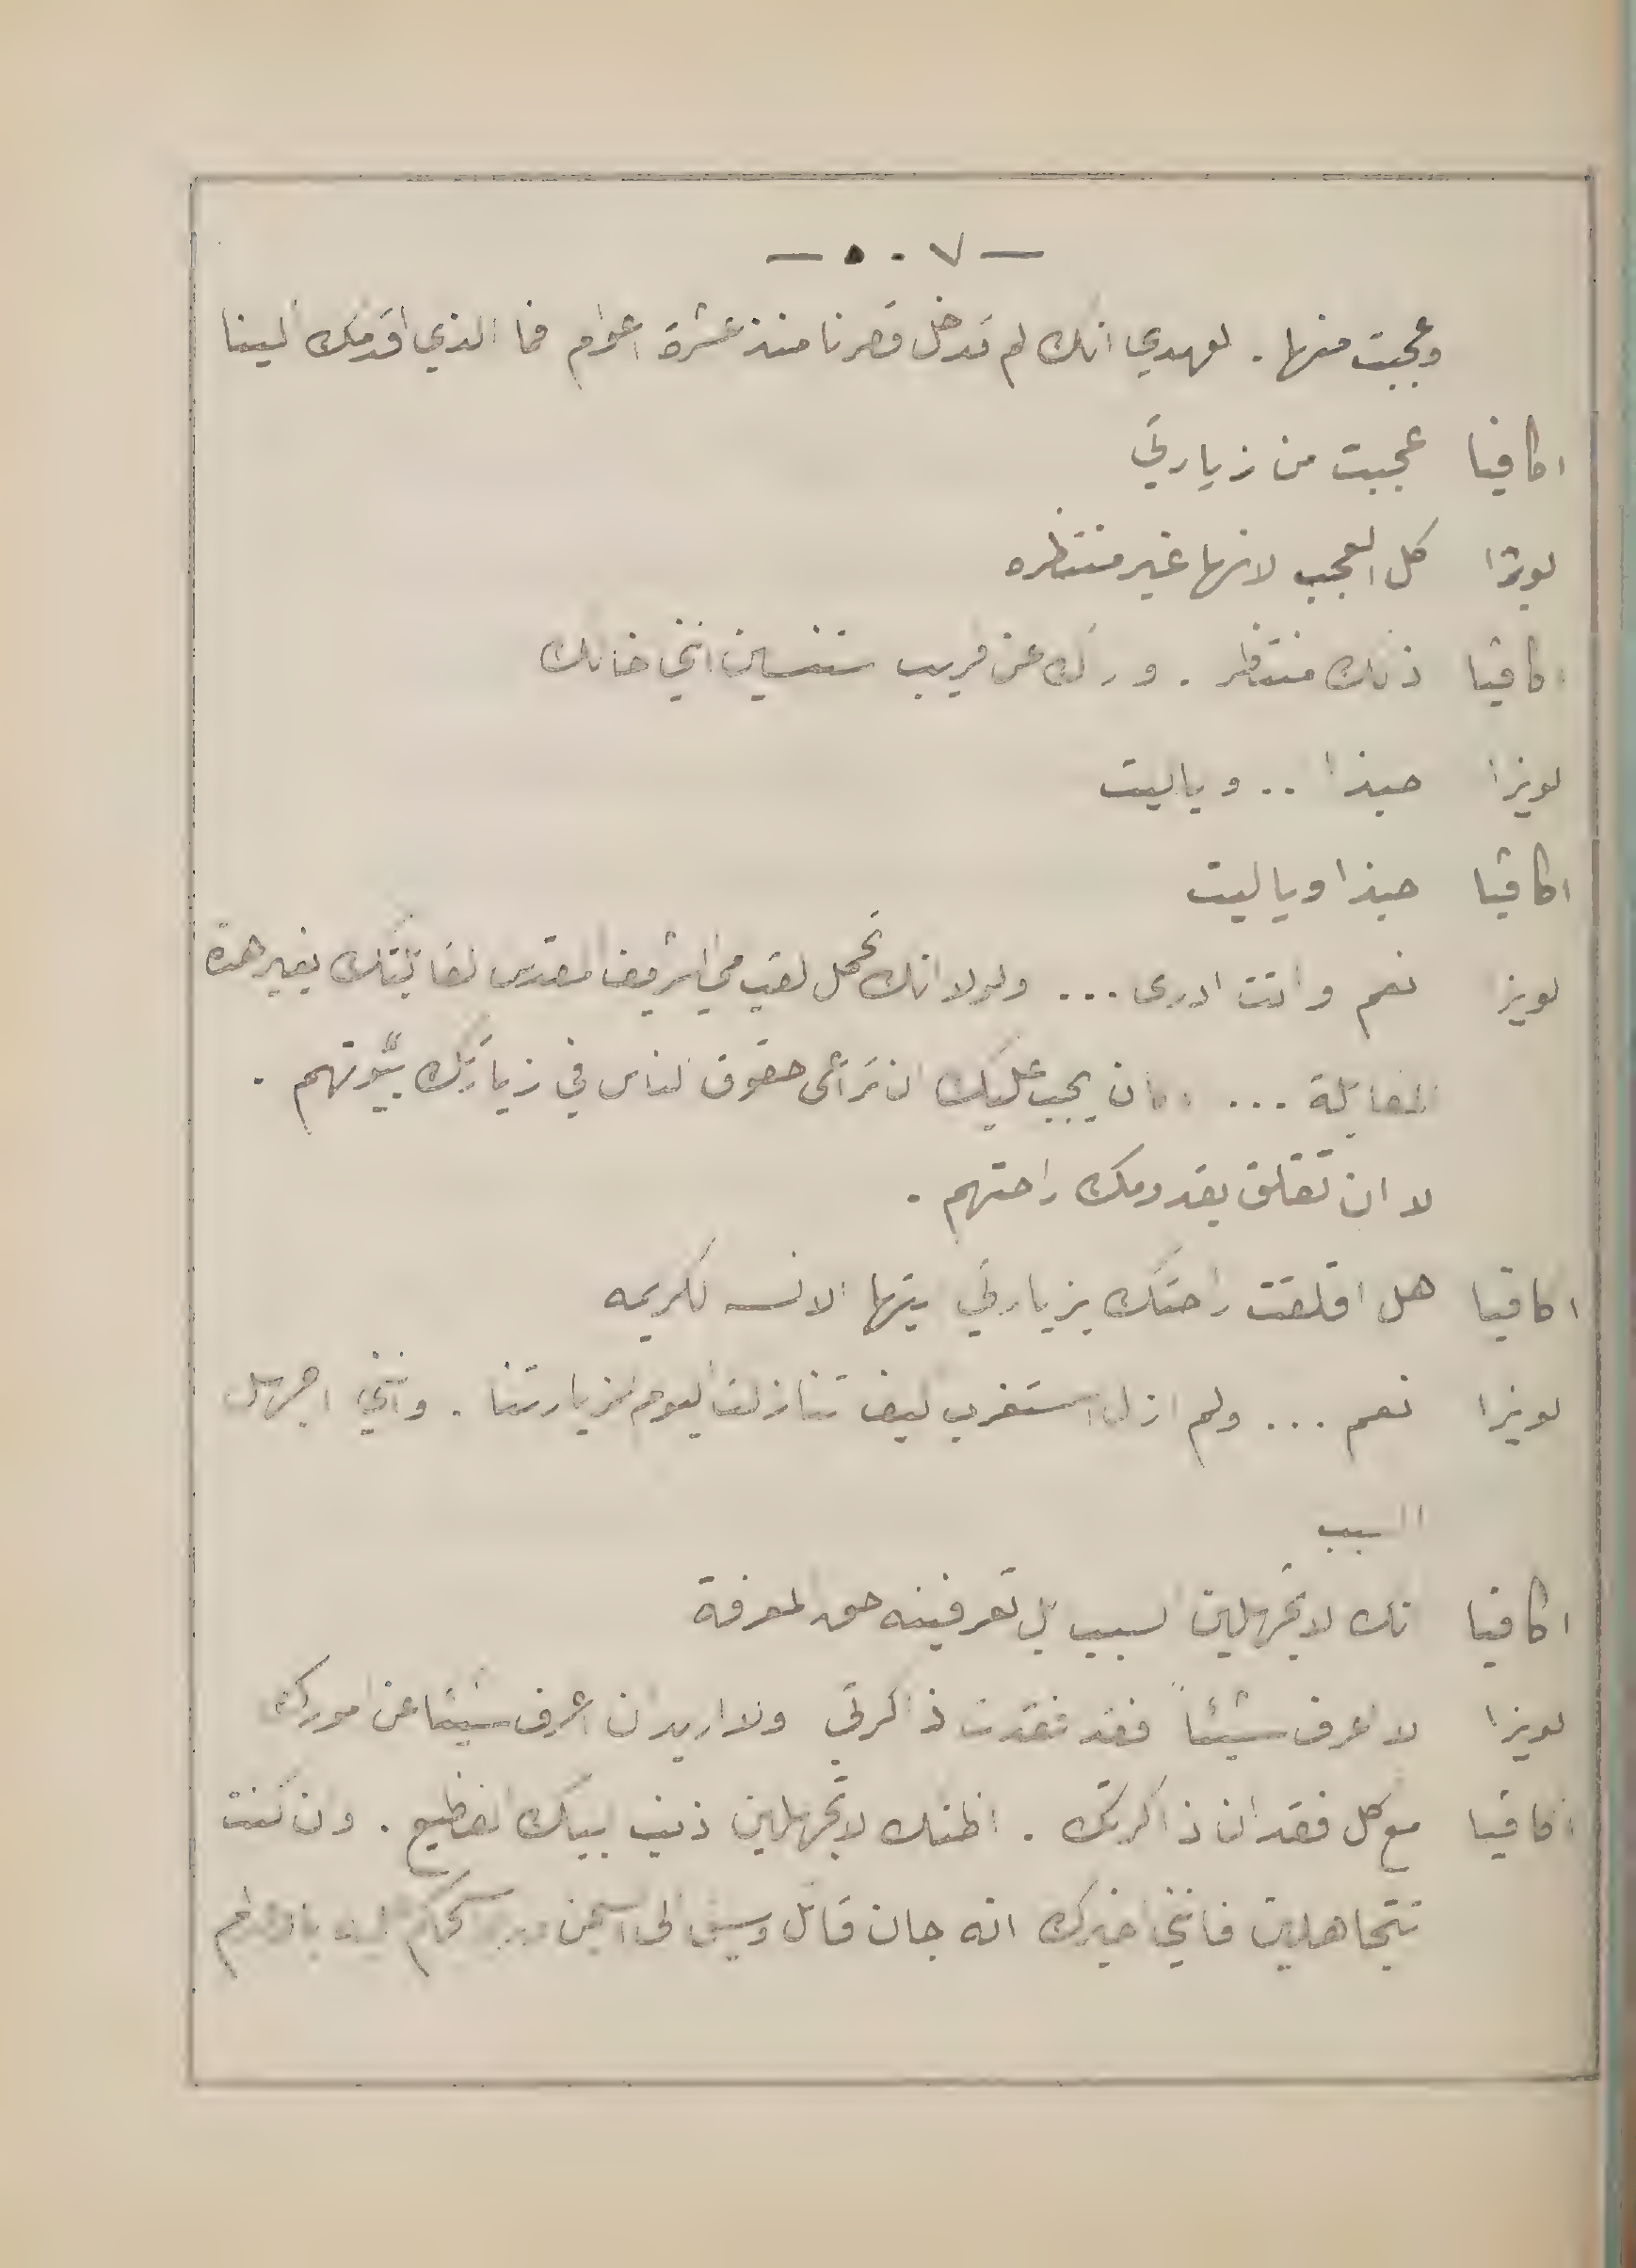 — ٥٠٧ —
وعجبت منها . لعهدي انك لم تدخل قصرنا منذ عشرة اعوام فما الذي اقدمك الينا
اكاقيا عجبت من زيارتي
لويزا كل العجب لانها غير منتظره
اكاقيا ذلك منتظر . عن قريب ستنسين انني خالك
لويزا حبذا .. وياليت
اكاقيا حبذا وياليت
لويز نعم وانت ادرى ... ولولا انك تحمل لقب المقدس لقابلتك بغير هذه
المقابلة ... يجب عليك ان تراعى حقوق الناس في زيارتك بيوتهم .
لا ان تقلق بقدومك راحتهم .
اكاقيا هل اقلقت راحتك بزيارتي ايتها الانسه الكريمه
لويزا نعم ... ولم ازل استغرب كيف تنازلت اليوم لزيارتنا . وانني اجهل
السبب
اكاقيا انك لا تجهلين السبب بل تعرفينه حق المعرفة
لويزا لا اعرف شيئاً فقد فقدت ذاكرتي ولا اريد ان اعرف شيئا عن امورك
اكاقيا مع كل فقدان ذاكرتك . اظنك لا تجهلين ذنب ابيك الفظيع . وان كنت
تتجاهلين فانني اخبرك انه جان قاتل وسيق الى السجن